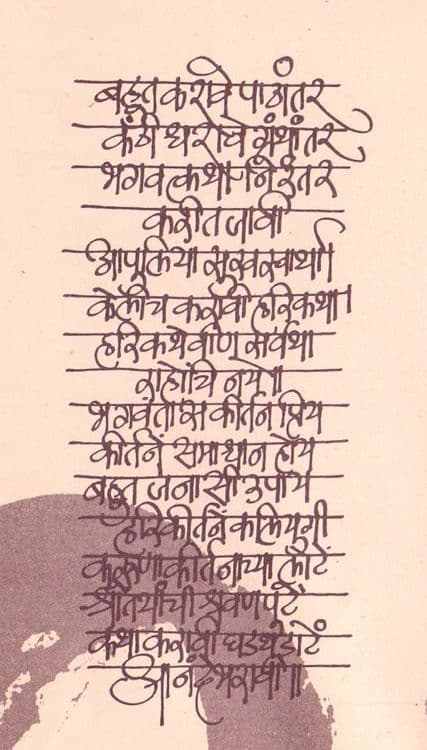 बहुत करावें पाठांतर
कंठीं धरावें ग्रंथांतर
भगवत्कथा निरंतर
करीत जावी
आपुलिया सुखस्वार्था।
केलीच करावी हरिकथा।
हरिकथेवीण सर्वथा
राहोंचि नये॥
भगवंतास कीर्तन प्रिय
कीर्तनें समाधान होय
बहुत जनासी उपाय
हरिकीर्तनें कलियुगी
करुणा कीर्तनाच्या लोटें
श्रोतयांचीं श्रवणपुटें
कथा करावी घडघडाटें
आनंदे भरावीं॥